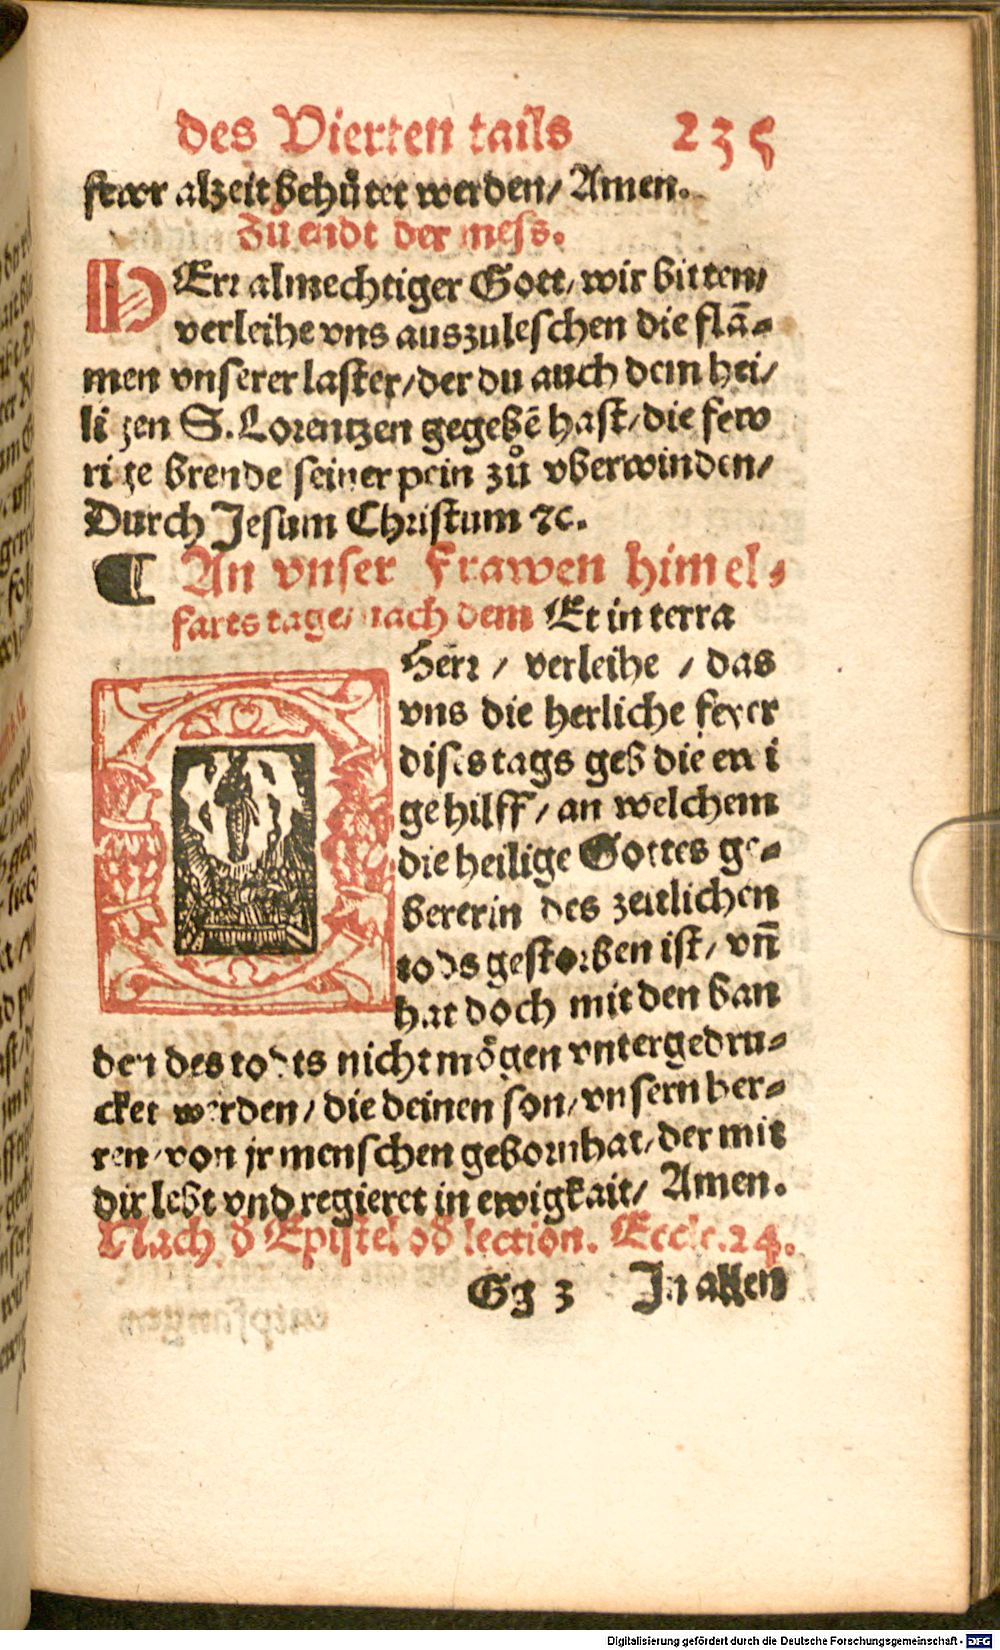 des Vierten tails 235
fewr alzeit behuͤtet werden/ Amen.
Zuͦ endt der mesß.
HErr almechtiger Gott/ wir bitten/
verleihe vns auszuleschen die flã-
men vnserer laster/ der du auch dem hei/
ligen S. Lorentzen gegebẽ hast/ die few
rige brende seiner pein zuͦ vberwinden/
Durch Jesum Christum ⁊c.
¶ An vnser Frawen himel-
farts tage/ nach dem Et in terra
Herr / verleihe / das
vns die herliche feyer
dises tags geb die ewi
ge hilff/ an welchem
die heilige Gottes ge-
bererin des zeitlichen
tods gestorben ist/ vñ
hat doch mit den ban
den des todts nicht moͤgen vntergedru-
cket werden/ die deinen son/ vnsern her-
ren/ von jr menschen geborn hat/ der mit
dir lebt vnd regieret in ewigkait/ Amen.
Nach d̕ Epistel od̕ lection. Eccle. 24.
Gg 3 In allen
Digitalisierung gefördert durch die Deutsche Forschungsgemeinschaft - DFG